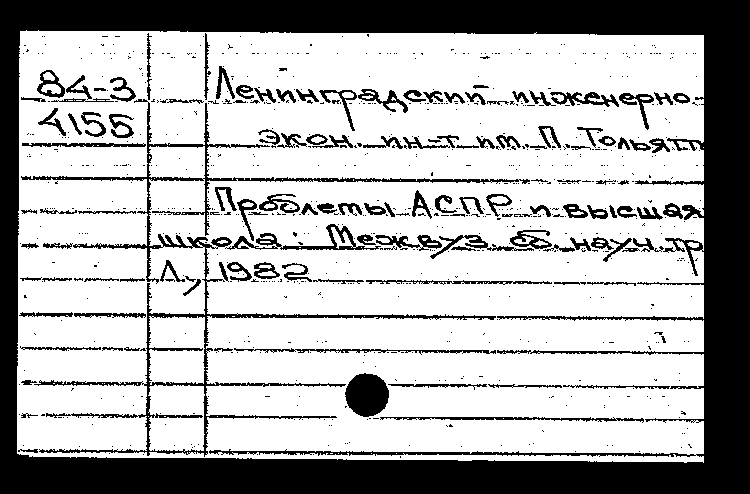 84-3 Ленинградский инженерно-
4155 экон. ин-т им. П. Тольятт
Проблемы АСПР и высшая
школа: Межвуз. сб. науч. тр
Л., 1982